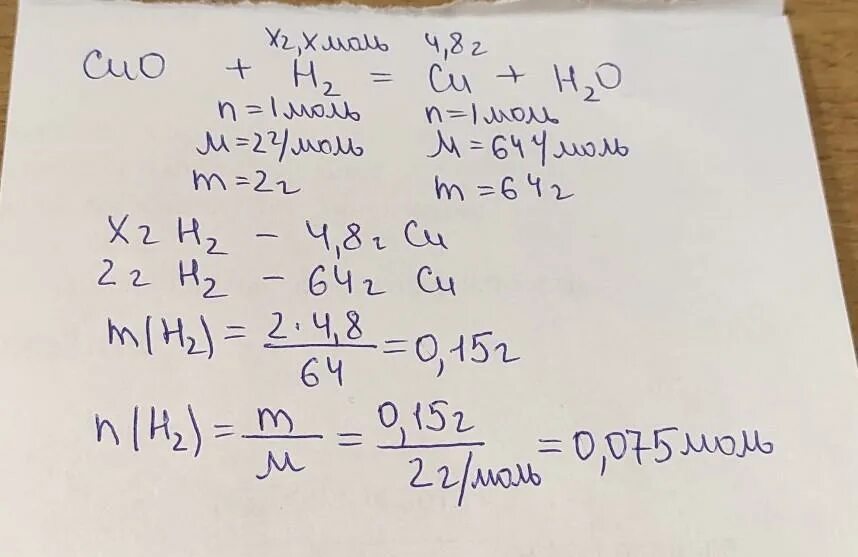 xг, x моль 4,8г
CuO + H₂ = Cu + H₂O
n=1моль n=1моль
M=2г/моль M=64г/моль
m=2г m=64г
xг H₂ - 4,8г Cu
2г H₂ - 64г Cu
m(H₂) = 2·4,8/64 = 0,15г
n(H₂) = m/M = 0,15г/2г/моль = 0,075моль